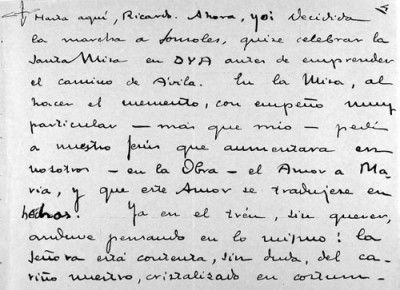 + Hasta aquí, Ricardo. Ahora, ya decidida
la marcha a Sonsoles, quise celebrar la
Santa Misa en DYA antes de emprender
el camino de Ávila. En la Misa, al
hacer el memento, con empeño muy
particular — más que mío — pedí
a nuestro Jesús que aumentara en
nosotros — en la Obra — el Amor a Ma-
ría, y que este Amor se tradujese en
hechos. Ya en el tren, sin querer,
anduve pensando en lo mismo: la
Señora está contenta, sin duda, del ca-
riño nuestro, cristalizado en costum-